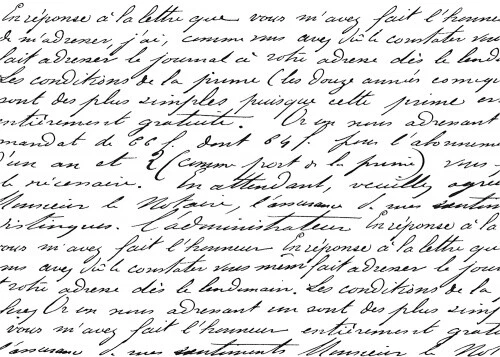 En réponse à la lettre que vous m'avez fait l'honneur
de m'adresser, j'ai, comme vous avez dû le constater vous
fait adresser le journal à votre adresse dès le lend
Les conditions de la prime (les douze années comque
sont des plus simples, puisque cette prime en
entièrement gratuite. Or en nous adressant
mandat de 66 f. dont 64 f. pour l'abonneme
d'un an et 2 (comme port de la prime) vous
le nécessaire. En attendant, veuillez agrée
Monsieur le Notaire, l'assurance d. mes sentim
distingués. L'administrateur En réponse à la
vous m'avez fait l'honneur En réponse à la lettre que
vous avez dû le constater vous même fait adresser le jour
votre adresse dès le lendemain. Les conditions de la
Or en nous adressant un sont des plus simp
vous m'avez fait l'honneur entièrement gratuit
l'assurance d. mes sentiments Monsieur le No